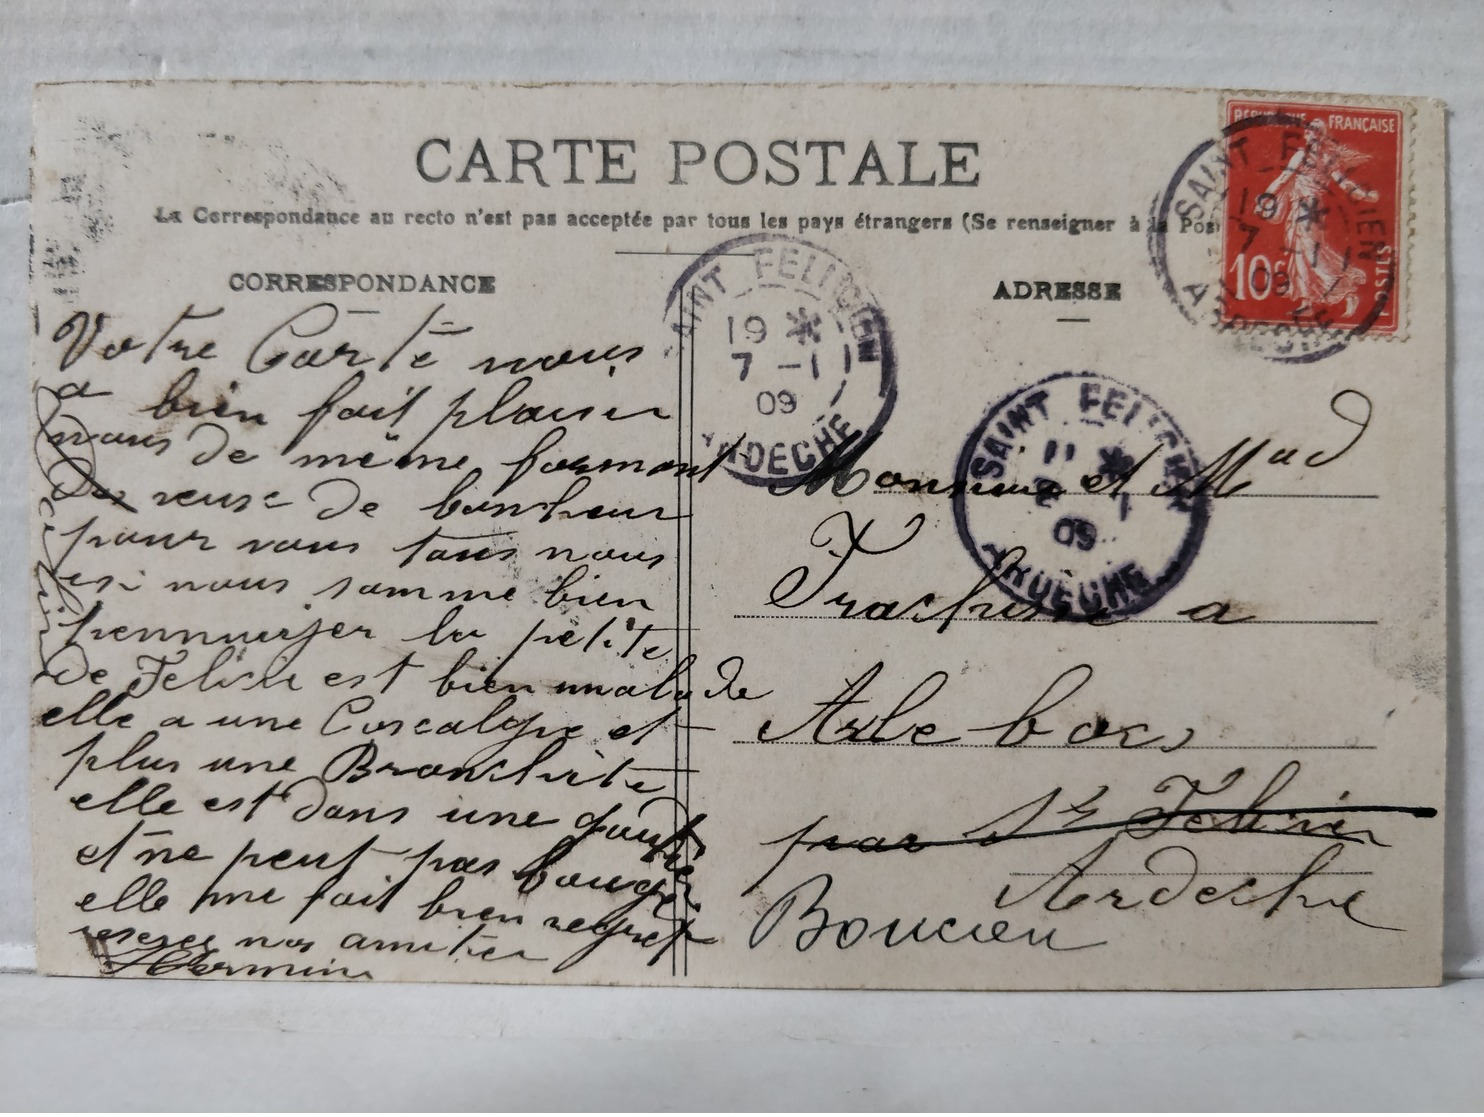 CARTE POSTALE
La Correspondance au recto n'est pas acceptée par tous les pays étrangers (Se renseigner à la Pos
CORRESPONDANCE
Votre Carte nous
a bien fait plaisir
nous de même formont
des veus de bonheur
pour vous tous nous
isi nous somme bien
la petite
de Felicie est bien malade
elle a une et
plus une Bronchite
elle est dans une gouttière
et ne peut pas bouger
elle me fait bien regret
nos amitier
Hermini
ADRESSE
Monsieur et Mad
a
Arlebocs
par St Felicien
Ardeche
Boucieu
REPUBLIQUE FRANÇAISE
10c
POSTES
SAINT FELICIEN
19 *
7 -1
09
ARDECHE
SAINT FELICIEN
19 *
7 -1
09
ARDECHE
SAINT FELICIEN
11 *
09
ARDECHE